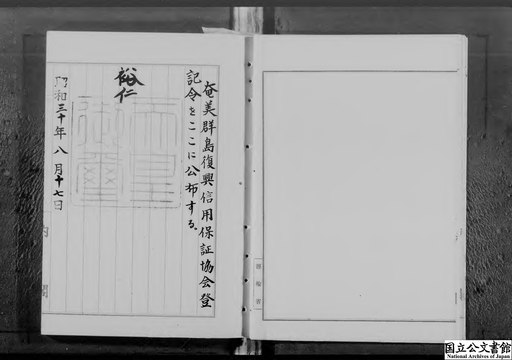 奄美群島復興信用保証協会登
記令をここに公布する。
裕仁
天皇
御璽
昭和三十年八月十七日
内閣
国立公文書館
National Archives of Japan